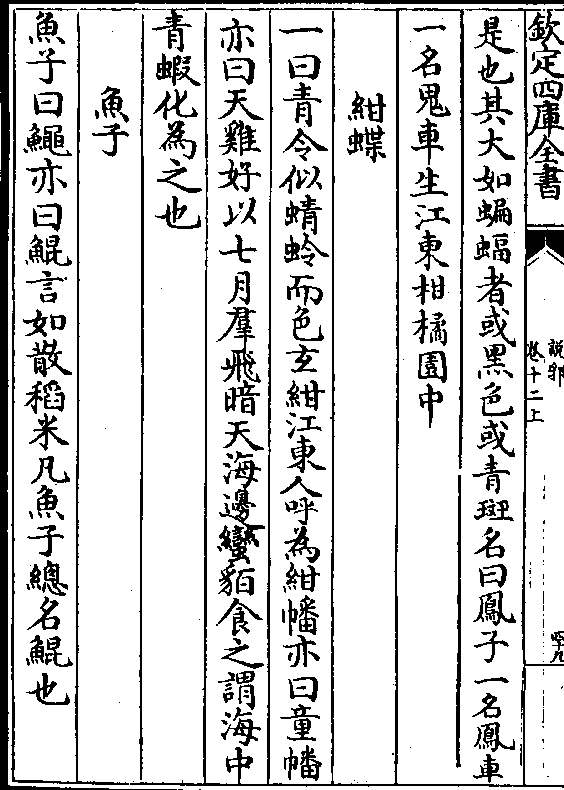 欽定四庫全書
說郛
卷十二上
四十九
是也其大如蝙蝠者或黑色或青斑名曰鳳子一名鳳車
一名鬼車生江東柑橘園中
紺蝶
一曰青令似蜻蛉而色玄紺江東人呼為紺幡亦曰童幡
亦曰天雞好以七月羣飛暗天海邊蠻貊食之謂海中
青蝦化為之也
魚子
魚子曰鱦亦曰鯤言如散稻米凡魚子總名鯤也